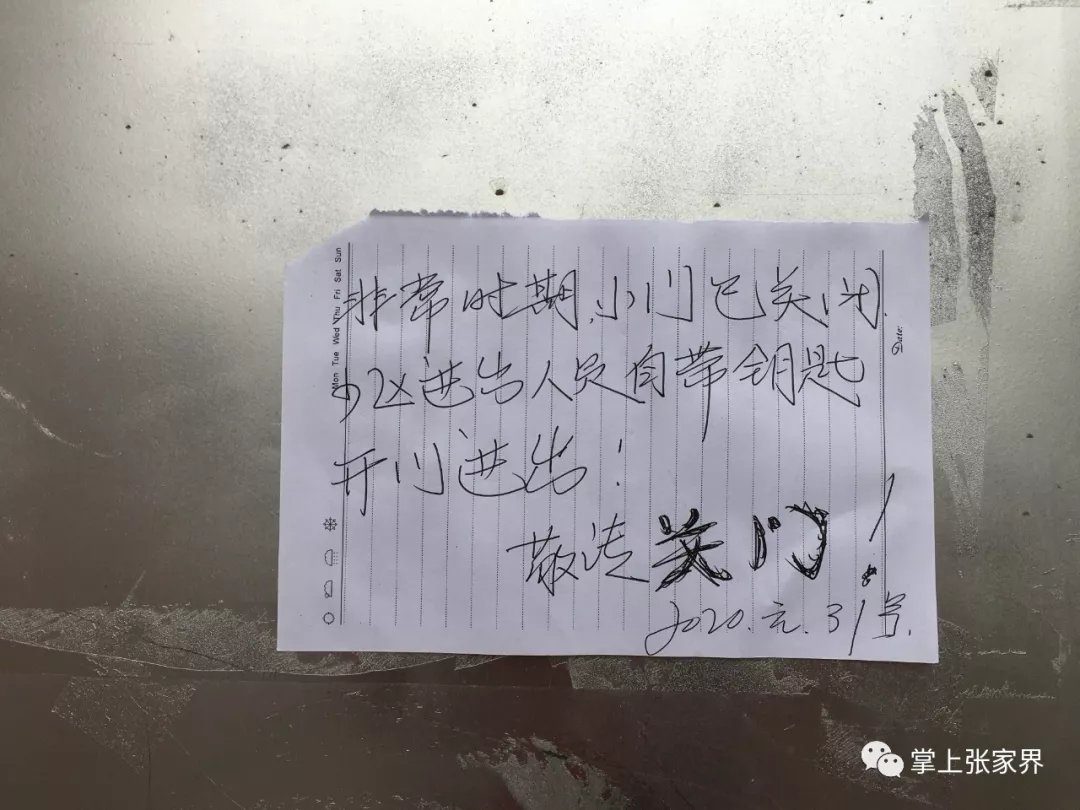 非常时期,小门已关闭.
小区进出人员自带钥匙
开门进出!
敬请关门!
2020.元.31号.
Mon Tue Wed Thu Fri Sat Sun
Date:
掌上张家界